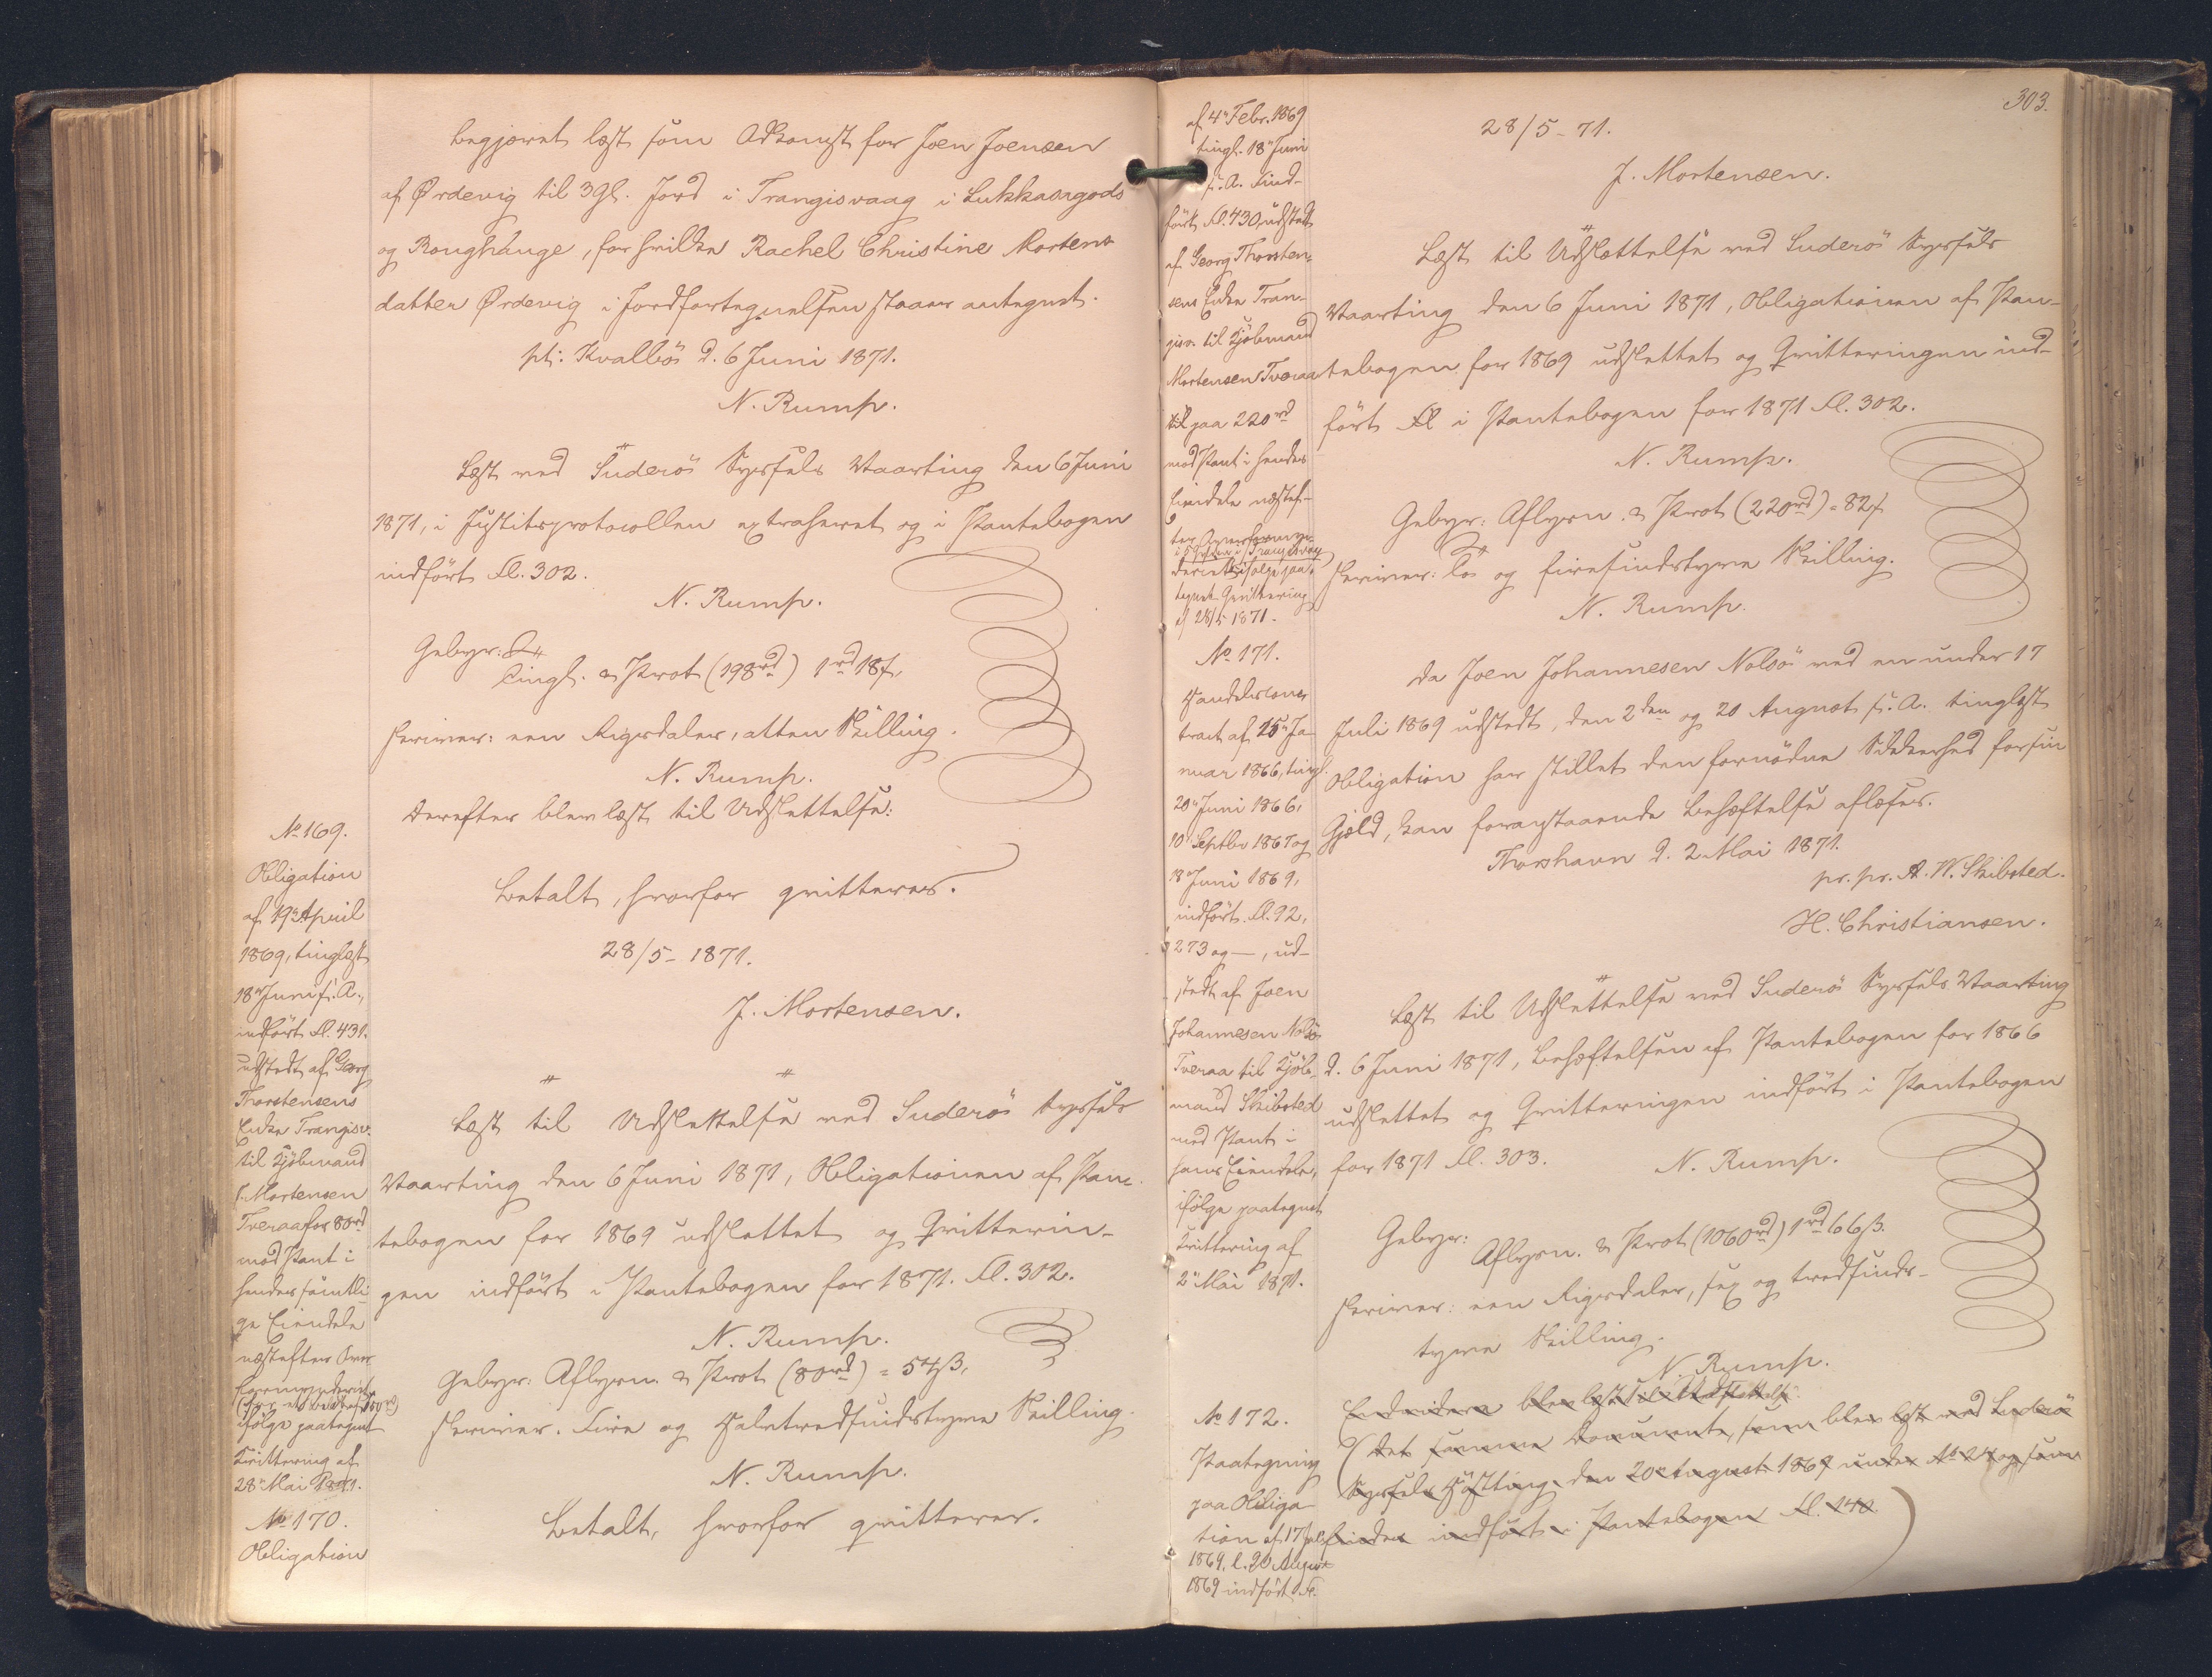 begjæret læst som Adkomst for Joen Joensen
af Ørdevig til 3 Gl. Jord i Trangisvaag i Lukkasngods
og Roughauge, for hvilke Rachel Christine Mortens
datter Ørdevig i Jordfortegnelsen staaer antegnet.
pt: Kvalbö d. 6 Juni 1871.
N. Rump.
Læst ved Suderö Syssels Vaarting den 6 Juni
1871, i Justitsprotocollen extraheret og i Pantebogen
indført Fl. 302.
N. Rump.
Gebyr:
Tingl. & Prot (198 rd) 1 rd 18 ß,
skriver: een Rigsdaler, atten Skilling.
N. Rump.
Derefter blev læst til Udslettelse:
No 169.
Obligation
af 19 April
1869, tinglæst
18 Juni s. A.,
indført Fl. 431.
udstedt af Georg
Thorstensens
Enke Trangisv.
til Kjöbmand
J. Mortensen
Tveraa for 80 rd
mod Pant i
hendes samtli-
ge Eiendele
næstefter Over
ifølge paategnet
Qvittering af
28 Mai 1871.
No 170.
Obligation
Betalt, hvorfor qvitteres.
28/5 - 1871.
J. Mortensen.
Læst til Udslettelse ved Suderö Syssels
Vaarting den 6 Juni 1871, Obligationen af Pan-
tebogen for 1869 udslettet og Qvitterin-
gen indført i Pantebogen for 1871. Fl. 302.
N. Rump.
Gebyr: Aflysn. & Prot (80 rd) = 54 ß,
skriver. Fire og Halvtredsindstyve Skilling.
N. Rump.
Betalt, hvorfor qvitterer.
303.
af 4 Febr. 1869
tingl. 18 Juni
s. A. Ind-
ført Fl. 430, udstedt
af Georg Thorsten-
sens Enke Tran-
gisv. til Kjöbmand
Mortensen Tveraa
paa 220 rd
mod Pant i hendes
Eiendele næstef-
ter
i Trangisvaag
ifølge paa-
tegnet Qvittering
af 28/5 1871.
No 171.
Handelscon-
tract af 15 Ja-
nuar 1866, tingl.
20 Juni 1866,
10 Septbr 1867 og
18 Juni 1869,
indført Fl. 92,
273 og —, ud-
stedt af Joen
Johannesen Nolsö
Tveraa til Kjöb-
mand Skibsted
med Pant i
hans Eiendele,
ifølge paategnet
Qvittering af
2 Mai 1871.
No 172.
Paategning
paa Obliga-
tion af 17 Juli
1869, l. 20 August
1869 indført Fl.
28/5 - 71.
J. Mortensen.
Læst til Udslettelse ved Suderö Syssels
Vaarting den 6 Juni 1871, Obligationen af Pan-
tebogen for 1869 udslettet og Qvitteringen ind-
ført Fl i Pantebogen for 1871 Fl. 302.
N. Rump.
Gebyr: Aflysn. & Prot (220 rd) = 82 ß
skriver: To og firesindstyve Skilling.
N. Rump.
Da Joen Johannesen Nolsö ved en under 17
Juli 1869 udstedt, den 2den og 20 August s. A. tinglæst
Obligation har stillet den fornödne Sikkerhed for sin
Gjæld, kan foranstaaende Behæftelse aflæses.
Thorshavn d. 2 Mai 1871.
pr. pr. A. W. Skibsted.
H. Christiansen.
Læst til Udslettelse ved Suderö Syssels Vaarting
d. 6 Juni 1871, Behæftelsen af Pantebogen for 1866
udslettet og Qvitteringen indført i Pantebogen
for 1871 Fl. 303.
N. Rump.
Gebyr:
Aflysn. & Prot (1060 rd) 1 rd 66 ß.
skriver: een Rigsdaler, sex og tredsinds-
tyve Skilling.
N. Rump.
Endvidere blev læst til Udslettelse:
(det samme Document, som blev læst ved Suderö
Syssels Høstting den 20 August 1869 under No 24 og som
findes indført i Pantebogen Fl. 140.)